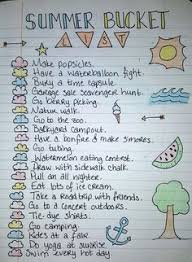 SUMMER BUCKET
LIST
Make popsicles.
Have a waterballoon fight.
Bury a time capsule.
Garage sale scavenger hunt.
Go berry picking.
Nature walk.
Go to the zoo.
Backyard campout.
Have a bonfire & make smores.
Go tubing.
Watermelon eating contest.
Draw with sidewalk chalk.
Pull an all nighter.
Eat lots of ice cream.
Take a road trip with friends.
Go to a concert outdoors.
Tie dye shirts.
Go camping.
Rides at a fair.
Do yoga at sunrise.
Swim every hot day